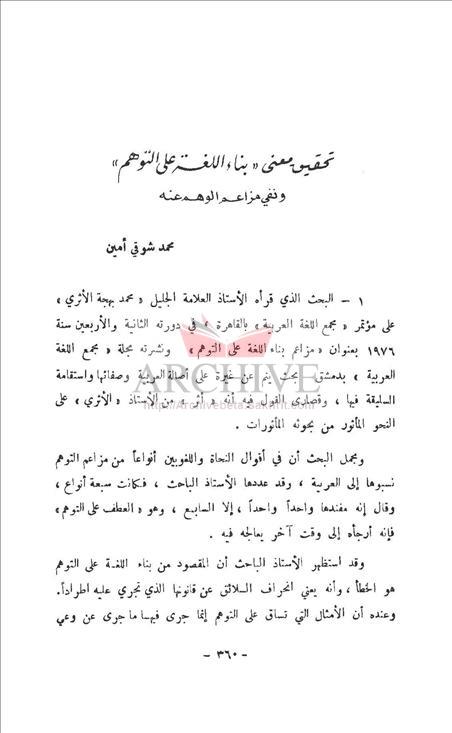 تحقيق معنى « بناء اللغة على التوهم »
ونفي مزاعم الوهم عنه
محمد شوقي أمين
١ – البحث الذي قرأه الأستاذ العلامة الجليل « محمد بهجة الأثري »
على مؤتمر « مجمع اللغة العربية » بالقاهرة ، في دورته الثانية والأربعين سنة
١٩٧٦ بعنوان « مزاعم بناء اللغة على التوهم » ونشرته مجلة « مجمع اللغة
العربية » بدمشق بحث ينم عن غيرة على أصالة العربية وصفائها واستقامة
السليقة فيها ، وقصارى القول فيه أنه « أثر » من الأستاذ « الأثري » على
النحو المأثور من بحوثه المأثورات .
ومجمل البحث أن في أقوال النحاة واللغويين أنواعاً من مزاعم التوهم
نسبوها إلى العربية ، وقد عددها الأستاذ الباحث ، فكانت سبعة أنواع ،
وقال إنه مفندها واحداً واحداً ، إلا السابع ، وهو « العطف على التوهم »
فإنه أرجأه إلى وقت آخر يعالجه فيه .
وقد استظهر الأستاذ الباحث أن المقصود من بناء اللغة على التوهم
هو الخطأ ، وأنه يعني انحراف السلائق عن قانونها الذي تجري عليه اطراداً.
وعنده أن الأمثال التي تساق على التوهم إنما جرى فيها ما جرى عن وعي
– ٣٦٠ –
ARCHIVE
http://Archivebeta.Sakhrit.com